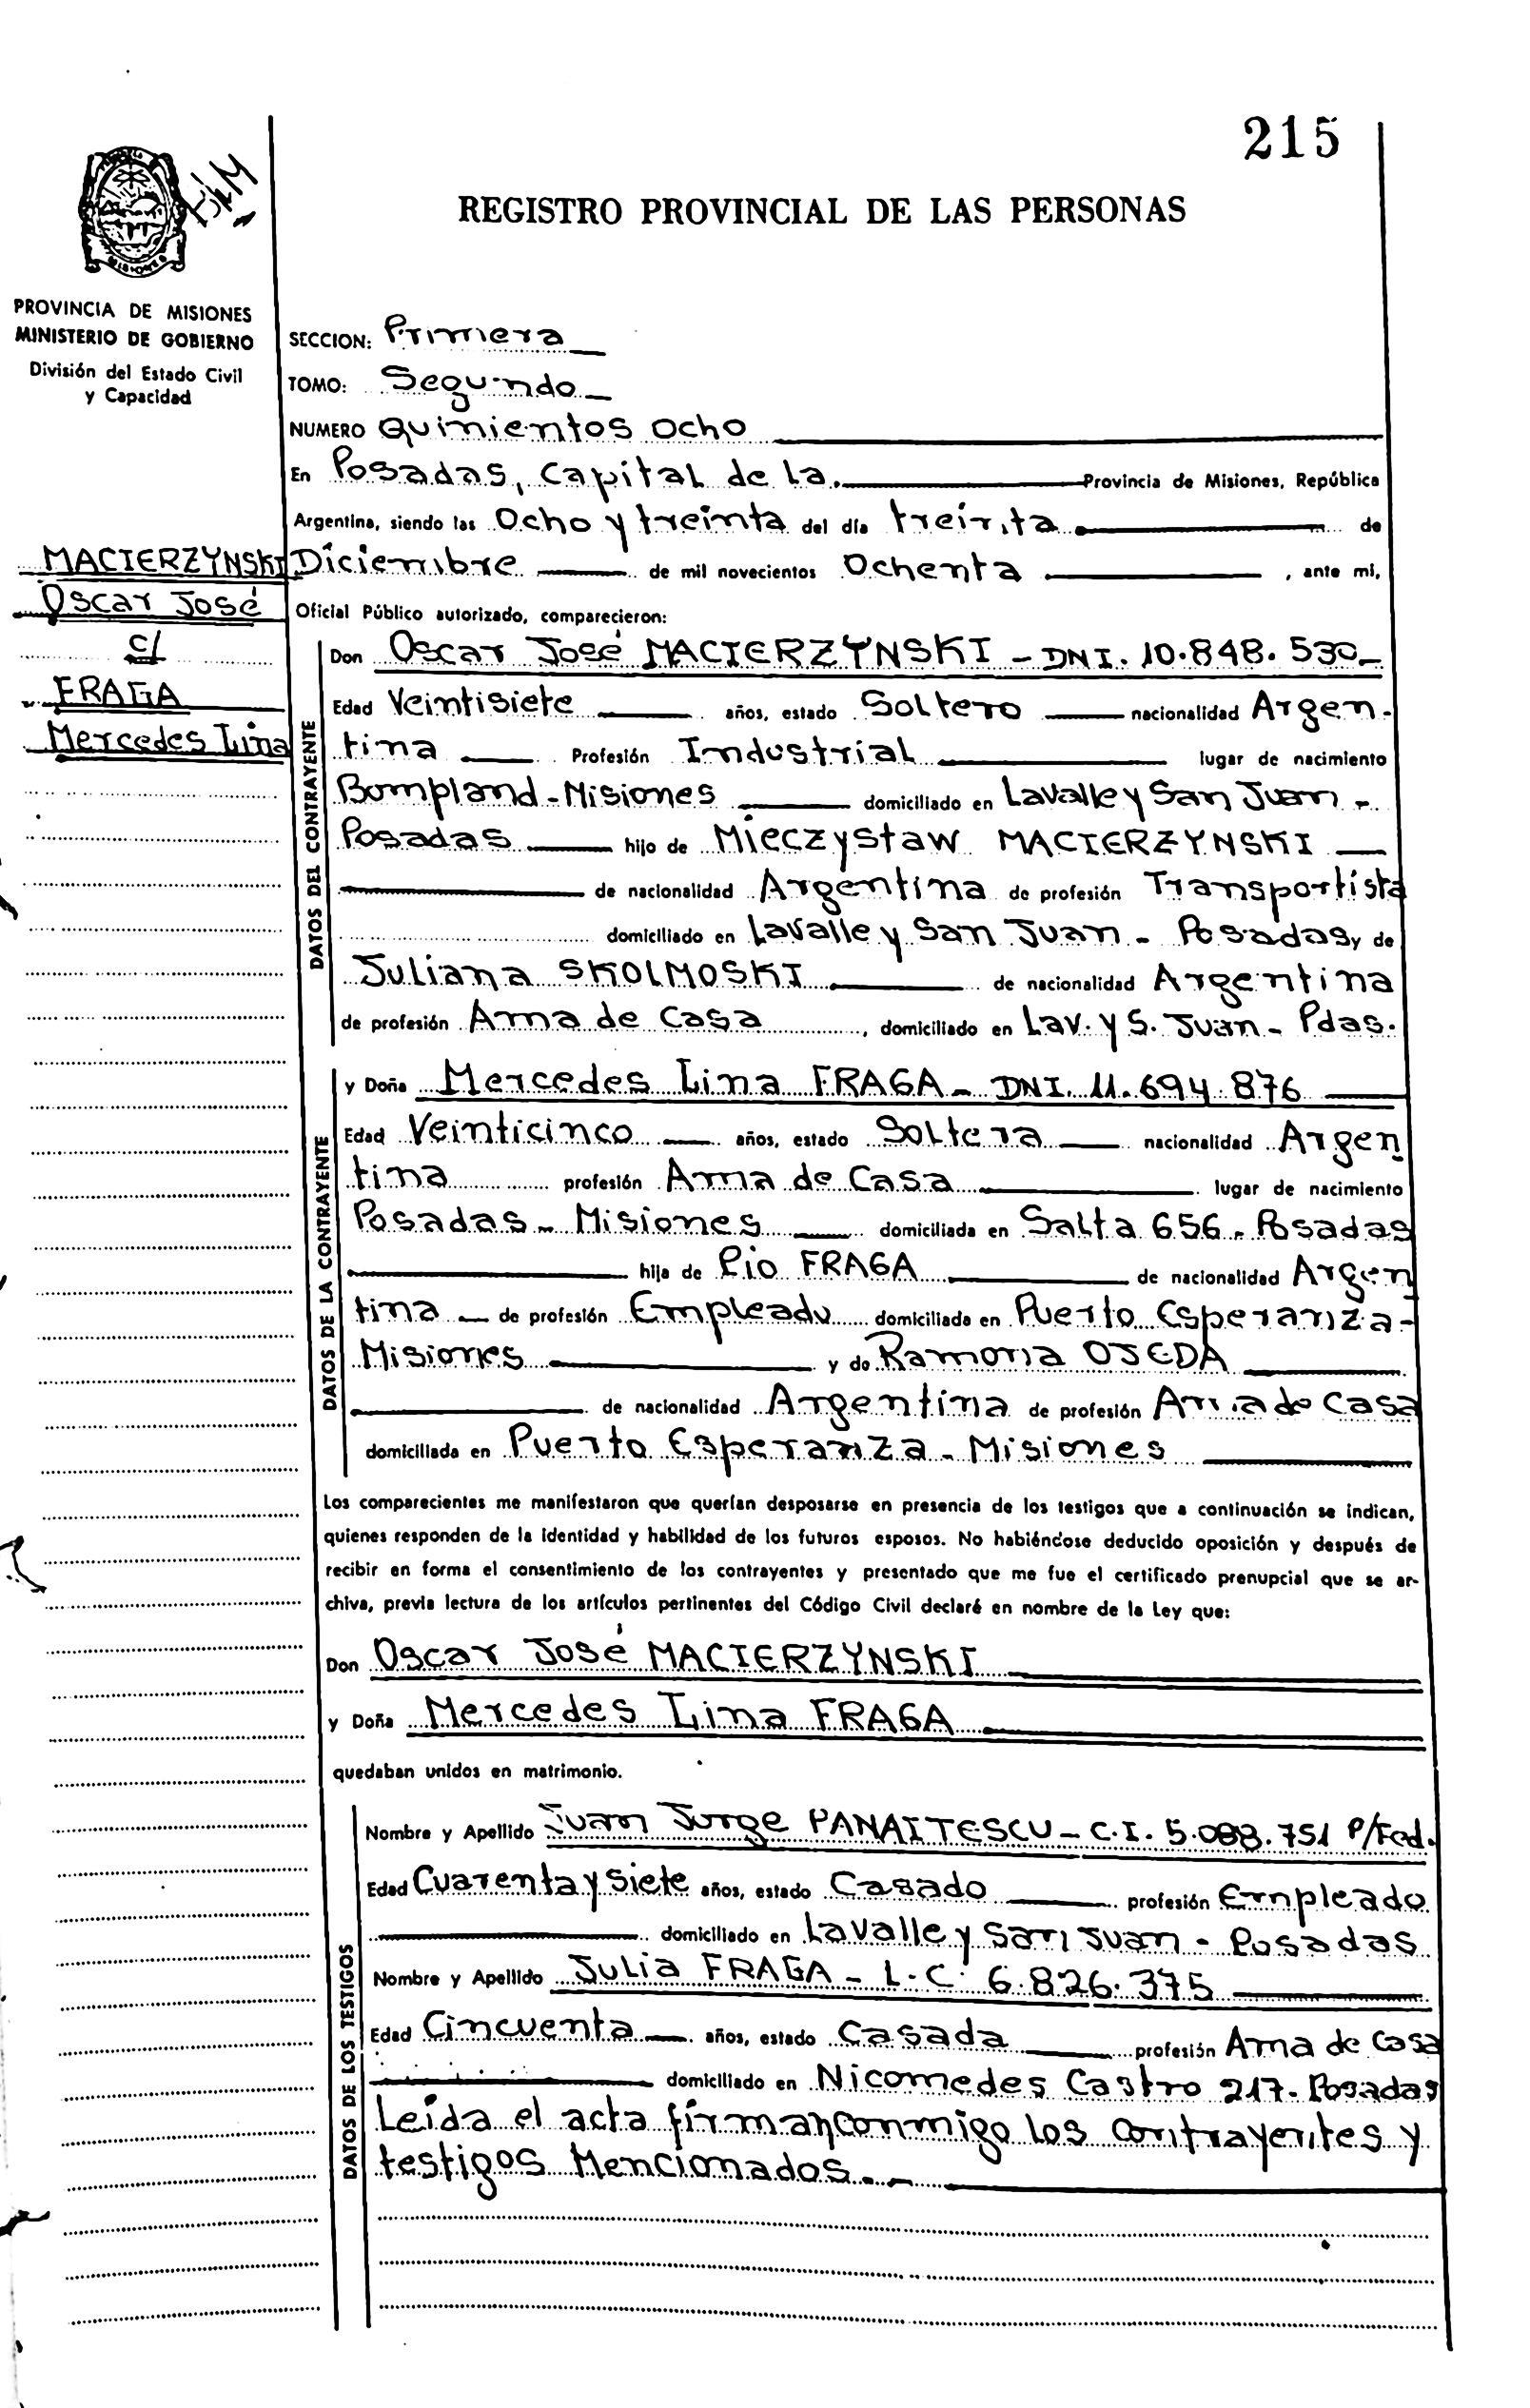 215
REGISTRO PROVINCIAL DE LAS PERSONAS
PROVINCIA DE MISIONES
MINISTERIO DE GOBIERNO
División del Estado Civil
y Capacidad
MACIERZYNSKI
Oscar José
c/
FRAGA
Mercedes Lina
SECCION: Primera
TOMO: Segundo
NUMERO Quinientos Ocho
En Posadas, Capital de la. Provincia de Misiones, República
Argentina, siendo las Ocho y treinta del día treinta de
Diciembre de mil novecientos Ochenta , ante mi,
Oficial Público autorizado, comparecieron:
DATOS DEL CONTRAYENTE
Don Oscar José MACIERZYNSKI - DNI. 10.848.530-
Edad Veintisiete años, estado Soltero nacionalidad Argen-
tina Profesión Industrial lugar de nacimiento
Bompland - Misiones domiciliado en Lavalle y San Juan -
Posadas hijo de Mieczystaw MACIERZYNSKI
de nacionalidad Argentina de profesión Transportista
domiciliado en Lavalle y San Juan - Posadas y de
Juliana SKOLMOSKI de nacionalidad Argentina
de profesión Ama de Casa , domiciliado en Lav. y S. Juan - Pdas.
DATOS DE LA CONTRAYENTE
y Doña Mercedes Lina FRAGA - DNI. 11.694.876
Edad Veinticinco años, estado Soltera nacionalidad Argen
tina profesión Ama de Casa lugar de nacimiento
Posadas - Misiones domiciliada en Salta 656 - Posadas
hija de Pio FRAGA de nacionalidad Argen
tina de profesión Empleado domiciliada en Puerto Esperanza -
Misiones y de Ramona OJEDA
de nacionalidad Argentina de profesión Ama de Casa
domiciliada en Puerto Esperanza - Misiones
Los comparecientes me manifestaron que querían desposarse en presencia de los testigos que a continuación se indican,
quienes responden de la identidad y habilidad de los futuros esposos. No habiéndose deducido oposición y después de
recibir en forma el consentimiento de los contrayentes y presentado que me fue el certificado prenupcial que se ar-
chiva, previa lectura de los artículos pertinentes del Código Civil declaré en nombre de la Ley que:
Don Oscar José MACIERZYNSKI
y Doña Mercedes Lina FRAGA
quedaban unidos en matrimonio.
DATOS DE LOS TESTIGOS
Nombre y Apellido Juan Jorge PANAITESCU - C.I. 5.083.751 P/Fed.
Edad Cuarenta y Siete años, estado Casado profesión Empleado
domiciliado en Lavalle y San Juan - Posadas
Nombre y Apellido Julia FRAGA - L.C. 6.826.375
Edad Cincuenta años, estado Casada profesión Ama de Casa
domiciliado en Nicomedes Castro 217 - Posadas
Leída el acta firman conmigo los Contrayentes y
testigos Mencionados. -